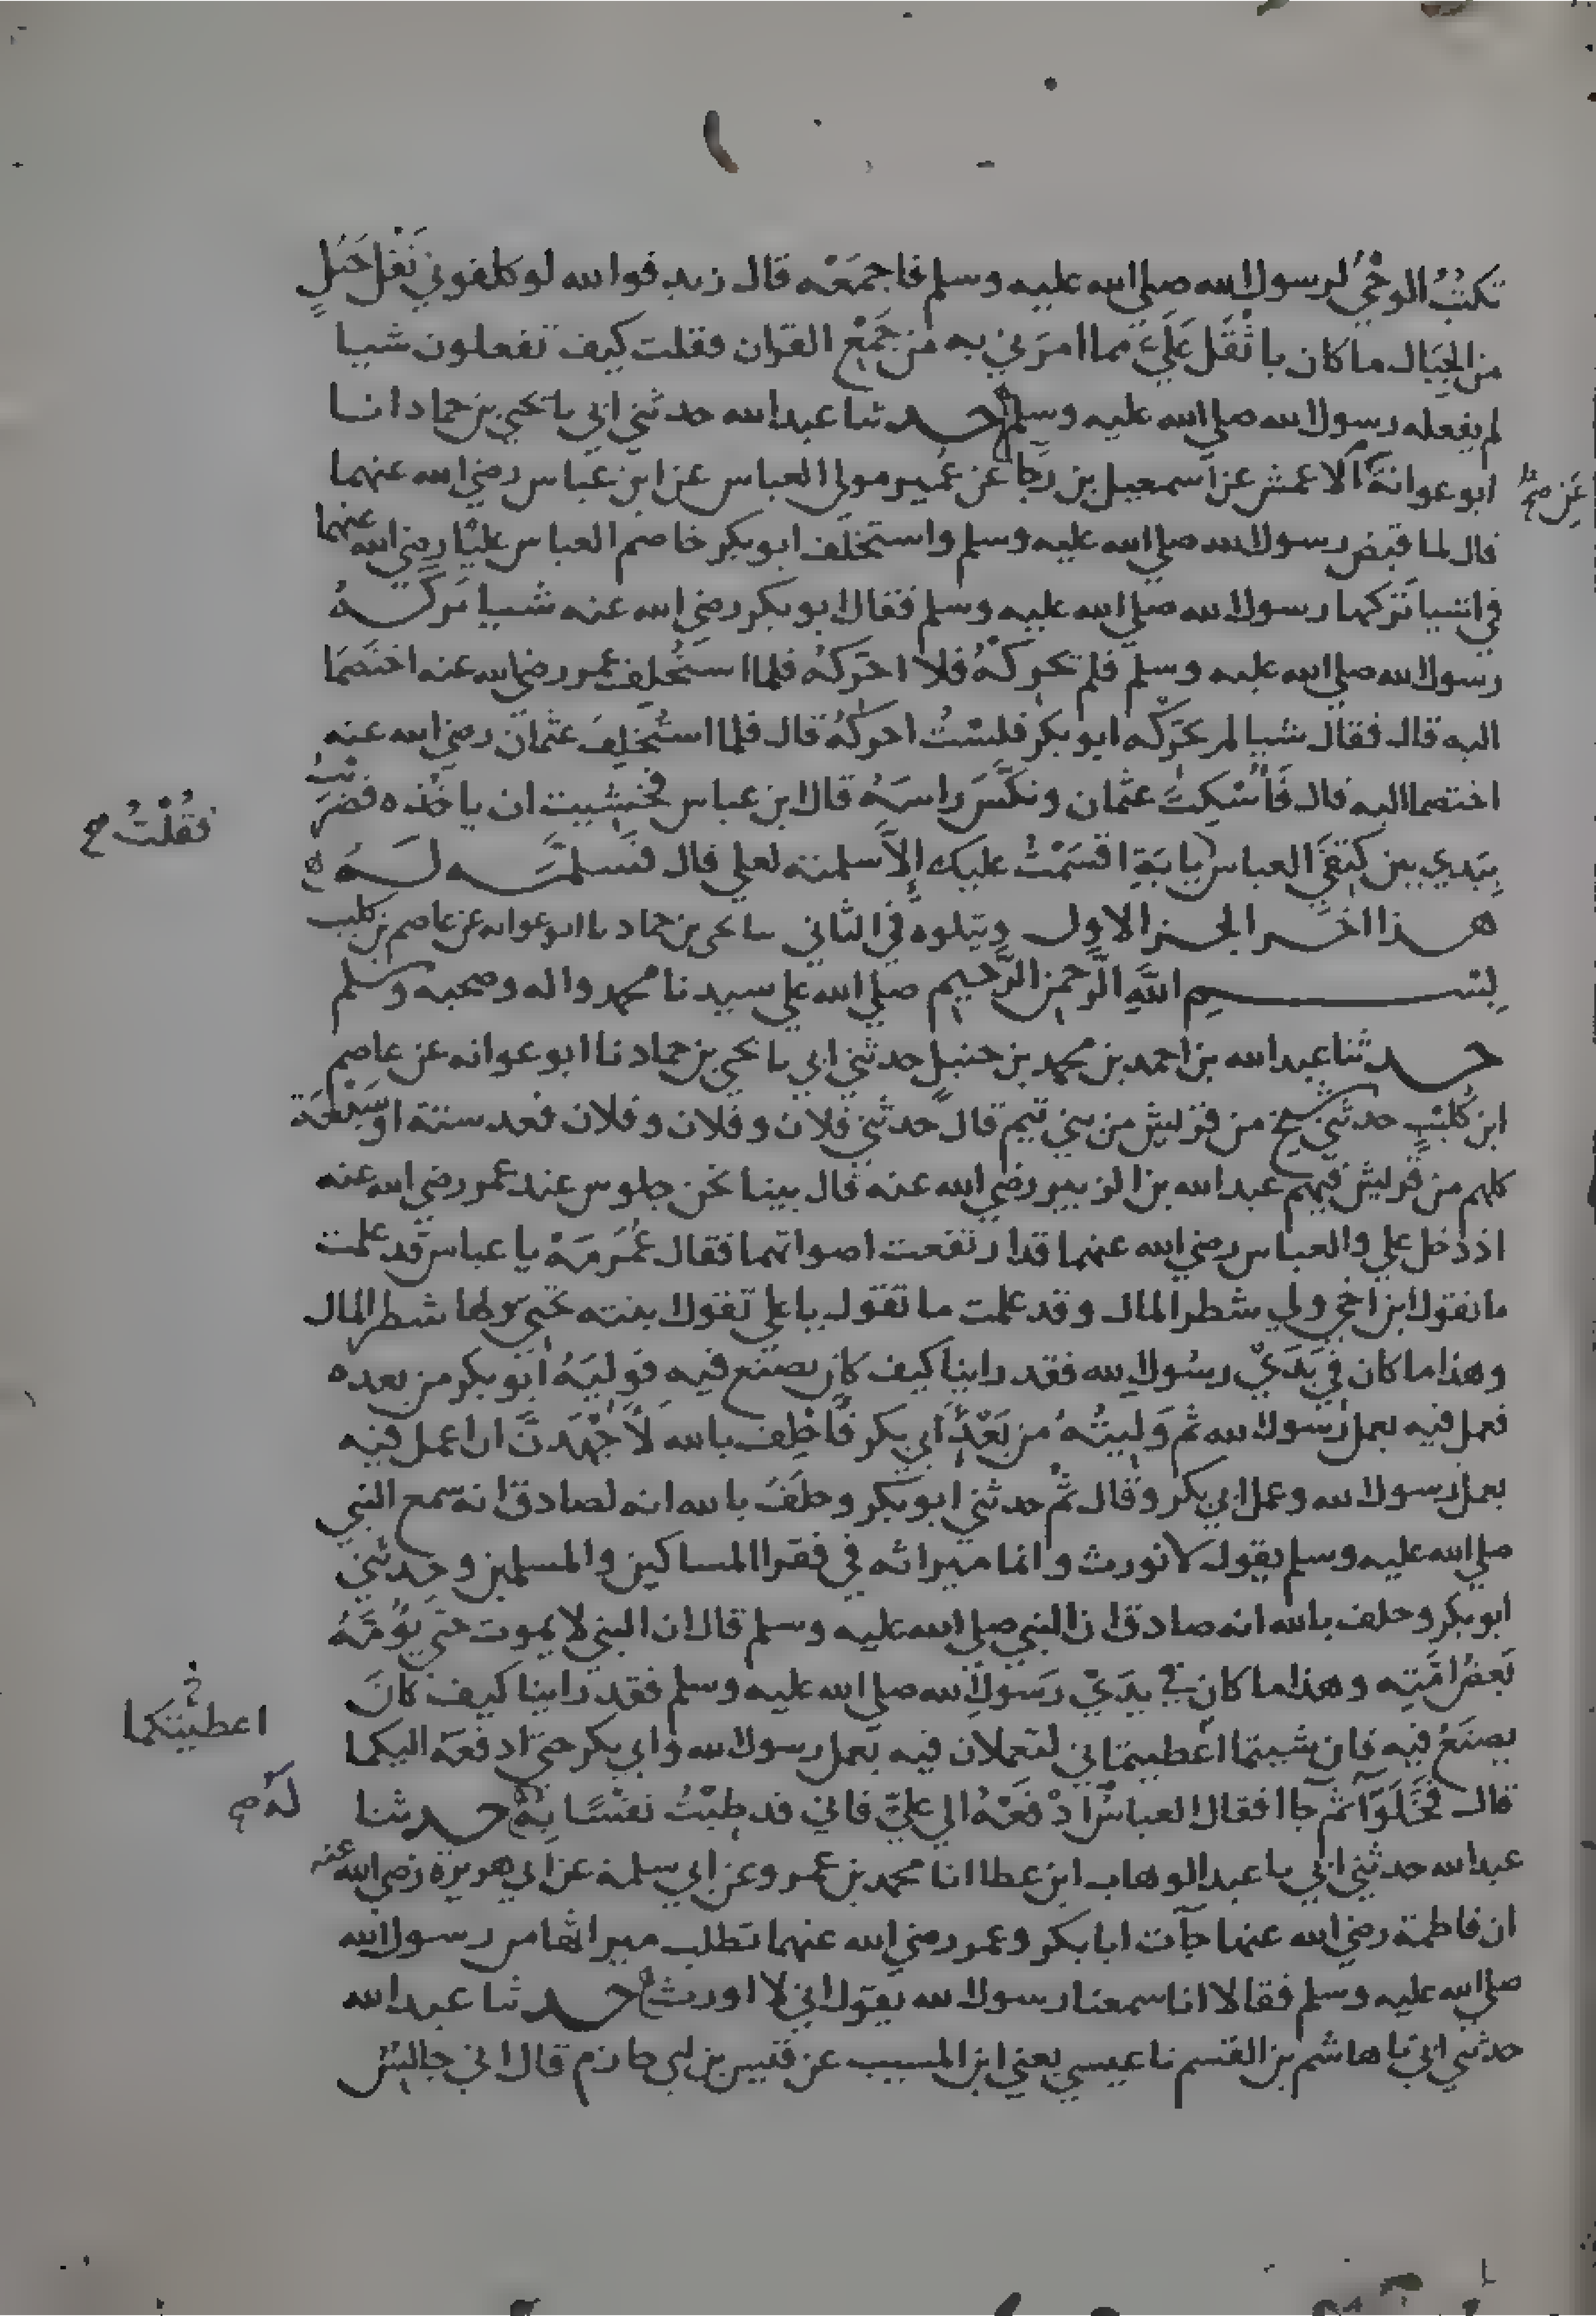 تكتُبُ الوحْيَ لرسول الله صلي الله عليه وسلم فاجمَعْه قال زيد فوالله لو كلفوني نَقْلَ جَبَلٍ
من الجِبَال ما كان باثْقَلَ عَلَيَّ مما امرَني به من جَمْعِ القران فقلت كيف تفعلون شيا
لم يفعله رسول الله صلي الله عليه وسلم حدثنا عبد الله حدثني ابي نا يحيي بن حماد انا
ابو عوانة الاعمش عن اسمعيل بن رجا عن عُمير مولي العباس عن ابن عباس رضي الله عنهما
عن صح
قال لما قبض رسول الله صلي الله عليه وسلم واستخلف ابو بكر خاصم العباس عليًا رضي الله عنهما
في اشيا تركها رسول الله صلي الله عليه وسلم فقال ابو بكر رضي الله عنه شيا تركه
رسول الله صلي الله عليه وسلم فلم يحركْهُ فلا احَركهُ فلما استُخلف عمر رضي الله عنه اختصمَا
اليه قال فقال شيا لم يحَركْه ابو بكر فلسْتُ احركهُ قال فلما استُخلِفَ عثمان رضي الله عنه
اختصما اليه قال فَأسْكِتَ عثمان ونكَّسَ راسَهُ قال ابن عباس فخشيت ان ياخُذه فضَرَبْتُ
بيَدي بين كتِفَيِ العباس يا ابَةِ اقسَمْتُ عليك إلاَّ سلمته لعلي قال فسلمَه لَهُ ه
فقُلْتُ صح
هذا اخر الجز الاول ويتلوه في الثاني نا يحيي بن حماد نا ابو عوانه عن عاصم بن كليب
بسم اللَّهِ الرَّحمن الرَّحيم صلي الله علي سيدنا محمد واله وصحبه وسلم
حدثنا عبد الله بن احمد بن محمد بن حنبل حدثني ابي نا يحيي بن حماد نا ابو عوانه عن عاصم
ابن كُلَيْبٍ حدثني شيخ من قريش من بني تيم قال حدثني فلان وفلان وفلان فعد ستة او سَبْعَة
كلهم من قريش فيهم عبد الله بن الزبير رضي الله عنه قال بينا نحن جلوس عند عمر رضي الله عنه
اذ دخل علي والعباس رضي الله عنهما قد ارتفعت اصواتهما فقال عُمَر مَهْ يا عباس قد علمت
ما تقول ابن اخي ولي شطر المال وقد علمت ما تقول يا علي تقول بنته تحتي ولها شطر المال
وهذا ما كان في يَدَيْ رسُول الله فقد راينا كيف كان يصنع فيه فوَليَهُ ابو بكر من بعده
فعمل فيه بعمل رسول الله ثم وَليتُهُ من بَعْدِ ابي بكر فاَحْلِف بالله لَأجْهَدَنَّ ان اعمل فيه
بعمل رسول الله وعمل ابي بكر وقال ثُم حدثني ابو بكر وحلَفَ بالله انه لصادق انه سمع النبي
صلي الله عليه وسلم يقول لا نورث وانما ميراثه في فقرا المساكين والمسلمين وحدثني
ابو بكر وحلف بالله انه صادق ان النبي صلي الله عليه وسلم قال ان النبي لا يموت حتي يؤُمَّهُ
بَعضُ امَّتِه وهذا ما كان في يدَيْ رسُول الله صلي الله عليه وسلم فقد راينا كيف كانَ
يصنَعُ فيه فان شيتما اعطيتماني لتعملان فيه بعمل رسول الله وابي بكر حتي ادفعَهُ اليكما
اعطيتكما
قال فخَلَوَا ثم جاا فقال العباسُ ادْفَعْهُ الي عليٍّ فاني قد طِبْتُ نفسًا بِهِ حدثنا
لَهُ صح
عبد الله حدثني ابي نا عبد الوهاب ابن عطا انا محمد بن عمرو عن ابي سلمة عن ابي هريرة رضي الله عنه
ان فاطمة رضي الله عنها جآت ابا بكر وعمر رضي الله عنهما تطلب ميراثها من رسول الله
صلي الله عليه وسلم فقالا انا سمعنا رسول الله يقول اني لا اورث حدثنا عبد الله
حدثني ابي نا هاشم بن القسم نا عيسي يعني ابن المسيب عن قيس بن ابي حازم قال اني جالس